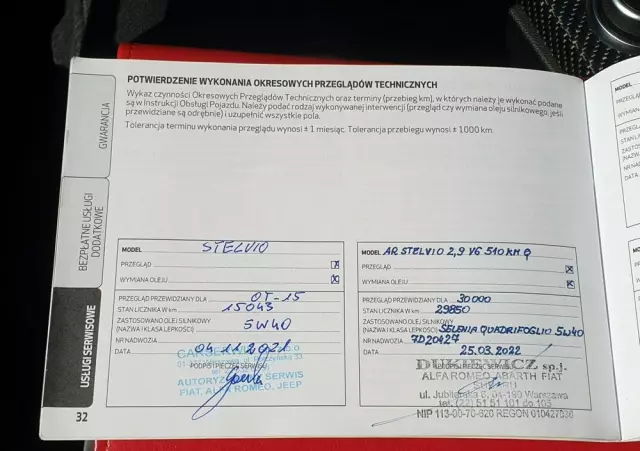 POTWIERDZENIE WYKONANIA OKRESOWYCH PRZEGLĄDÓW TECHNICZNYCH
Wykaz czynności Okresowych Przeglądów Technicznych oraz terminy (przebieg km), w których należy je wykonać podane
są w Instrukcji Obsługi Pojazdu. Należy podać rodzaj wykonywanej interwencji (przegląd czy wymiana oleju silnikowego, jeśli
przewidziane są odrębnie) i uzupełnić wszystkie pola.
Tolerancja terminu wykonania przeglądu wynosi ± 1 miesiąc. Tolerancja przebiegu wynosi ± 1000 km.
GWARANCJA
BEZPŁATNE USŁUGI
DODATKOWE
USŁUGI SERWISOWE
MODEL STELVIO
PRZEGLĄD X
WYMIANA OLEJU X
PRZEGLĄD PRZEWIDZIANY DLA OT-15
STAN LICZNIKA W km 15043
ZASTOSOWANO OLEJ SILNIKOWY
(NAZWA I KLASA LEPKOŚCI) 5W40
NR NADWOZIA
DATA 04.11.2021
PODPIS I PIECZĘĆ SERWISU
AUTORYZ SERWIS
FIAT, ALFA ROMEO, JEEP
MODEL AR STELVIO 2,9 V6 510KM Q
PRZEGLĄD X
WYMIANA OLEJU X
PRZEGLĄD PRZEWIDZIANY DLA 30000
STAN LICZNIKA W km 29850
ZASTOSOWANO OLEJ SILNIKOWY
(NAZWA I KLASA LEPKOŚCI) SELENIA QUADRIFOGLIO 5W40
NR NADWOZIA 7D20427
DATA 25.03.2022
PODPIS I PIECZĘĆ SERWISU
DUKIEWICZ sp.j.
ALFA ROMEO ABARTH FIAT
SUBARU
ul. Jubilerska 6, 04-190 Warszawa
tel. (22) 51 51 101 do 105
NIP 113-00-70-620 REGON 010427936
32
MODEL
PRZEGLĄD
DATA